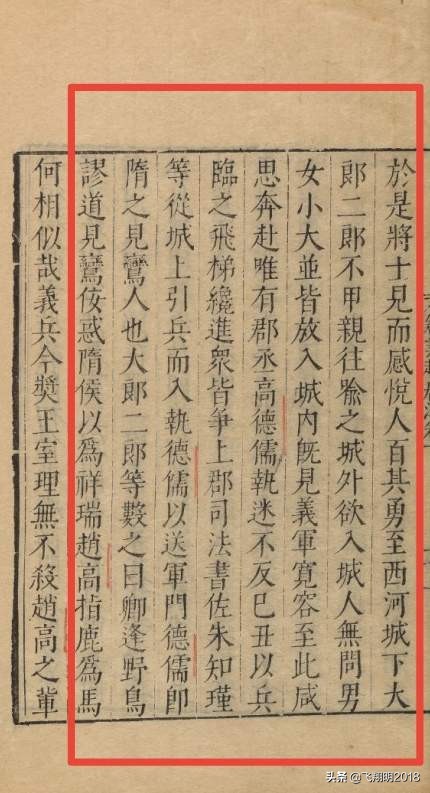 於是將士見而感悅人百其勇至西河城下大
郎二郎不甲親往喻之城外欲入城人無問男
女小大並皆放入城內既見義軍寬容至此咸
思奔赴唯有郡丞高德儒執迷不反己丑以兵
臨之飛梯纔進衆皆爭上郡司法書佐朱知瑾
等從城上引兵而入執德儒以送軍門德儒卽
隋之見鸞人也大郎二郎等數之曰卿逢野鳥
謬道見鸞佞惑隋侯以爲祥瑞趙高指鹿爲馬
何相似哉義兵今奬王室理無不殺趙高之輩
头条 @飞翔明2018